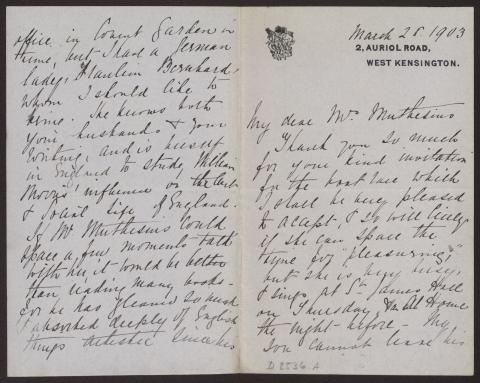 March 28. 1903
2, AURIOL ROAD,
WEST KENSINGTON.
My dear Mrs Muthesius
Thank you so much
for your kind invitation
for the boat race which
I shall be very pleased
to accept, & so will
if she can spare the
time for "pleasuring",
but she is very busy,
& sings at St James Hall
on Thursday, & an At Home
the night before - My
Son cannot leave his
office in Covent Garden in
time, but I had a German
lady, Fraulein Bernhard,
whom I should like to
bring. She knows both
your husband's & your
writing, and is herself
in England to study William
Morris' influence on the Art
& Social life of England.
If Mr Muthesius could
spare a few moments talk
with her it would be better
than reading many books -
for he has gleaned so much
& absorbed deeply of English
things artistic since his
D 2536 A